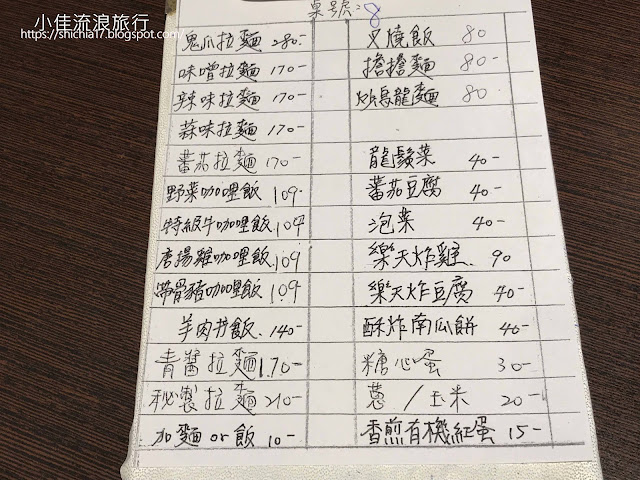 小佳流浪旅行
https://shichia17.blogspot.com/
桌號:8
鬼爪拉麵 280-
味噌拉麵 170-
辣味拉麵 170-
蒜味拉麵 170-
蕃茄拉麵 170-
野菜咖哩飯 109.
特級牛咖哩飯 109
唐揚雞咖哩飯 109
帶骨豬咖哩飯 109
羊肉扒飯 140-
青醬拉麵 170-
秘製拉麵 210-
加麵or飯 10-
叉燒飯 80
擔擔麵 80
炒烏龍麵 80
龍鬚菜 40-
蕃茄豆腐 40-
泡菜 40-
樂天炸雞 90
樂天炸豆腐 40-
酥炸南瓜餅 40-
糖心蛋 30-
蔥/玉米 20-
香煎有機紅蛋 15-